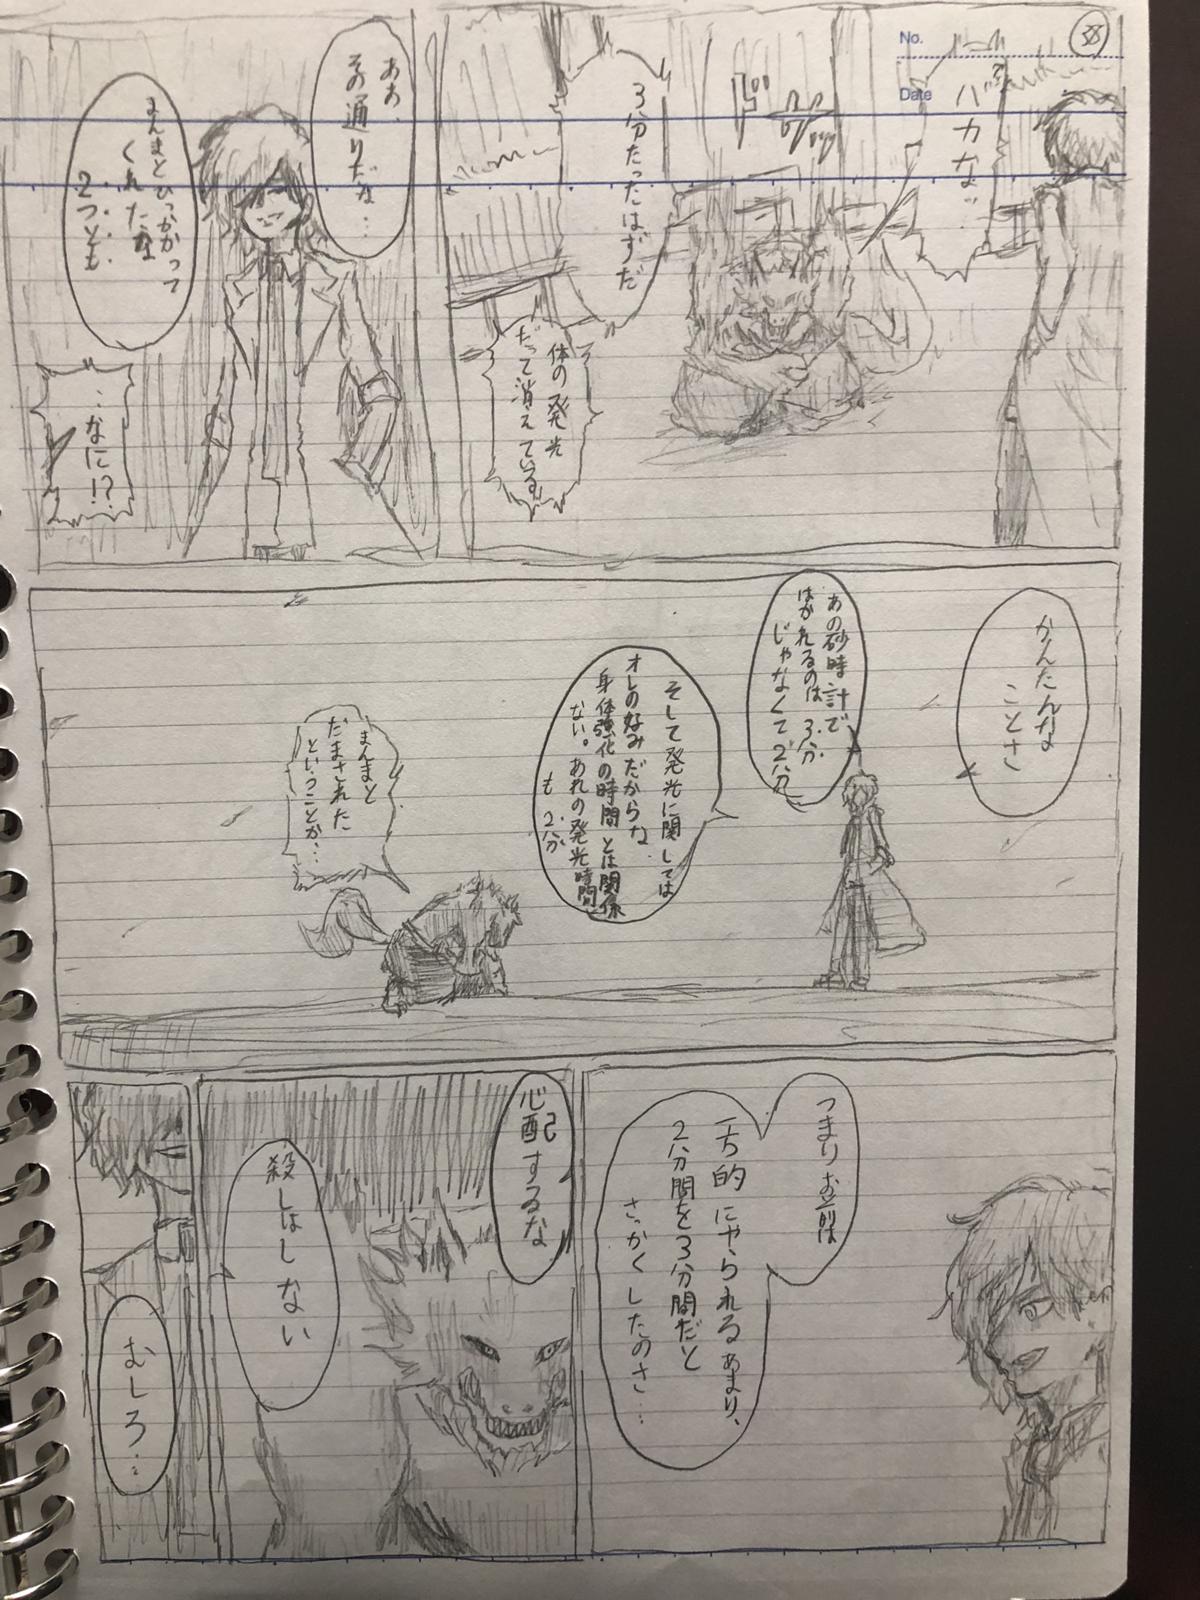 38
No.
Date
バカな…
ドサッ
3分たったはずだ
体の発光
だって消えている
ああ、
その通りだな…
まんまとひっかかって
くれたな
2つとも
…なに!?
かんたんな
ことさ
あの砂時計で
はかれるのは3分
じゃなくて2分
そして発光に関しては
オレの好みだからな
身体強化の時間とは関係
ない。あれの発光時間
も2分
まんまと
だまされた
ということか…
つまりお前は
一方的にやられるあまり、
2分間を3分間だと
さっかくしたのさ…
心配するな
殺しはしない
むしろ…